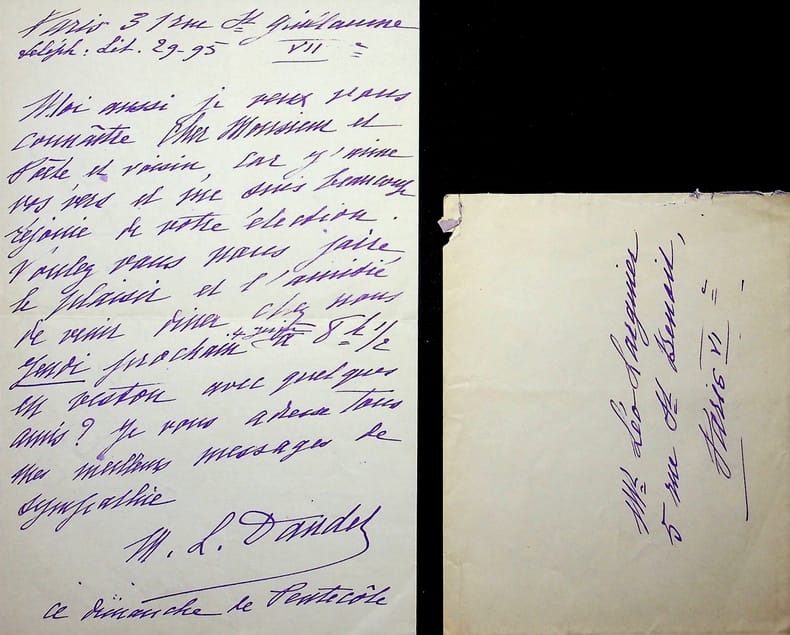 Paris 31 rue St Guillaume
téléph: Lit. 29-95 VII e
Moi aussi je veux vous
connaître Cher Monsieur et
Poète et voisin, car j'aime
vos vers et me suis beaucoup
réjouie de votre élection.
Voulez vous nous faire
le plaisir et l'amitié
de venir diner chez nous
Jeudi prochain 4 juin à 8h 1/2
en veston avec quelques
amis? Je vous adresse tous
mes meilleurs messages de
sympathie
M. L. Daudet
ce dimanche de Pentecôte
Mr Léo Larguier
5 rue St Benoit,
Paris VI e